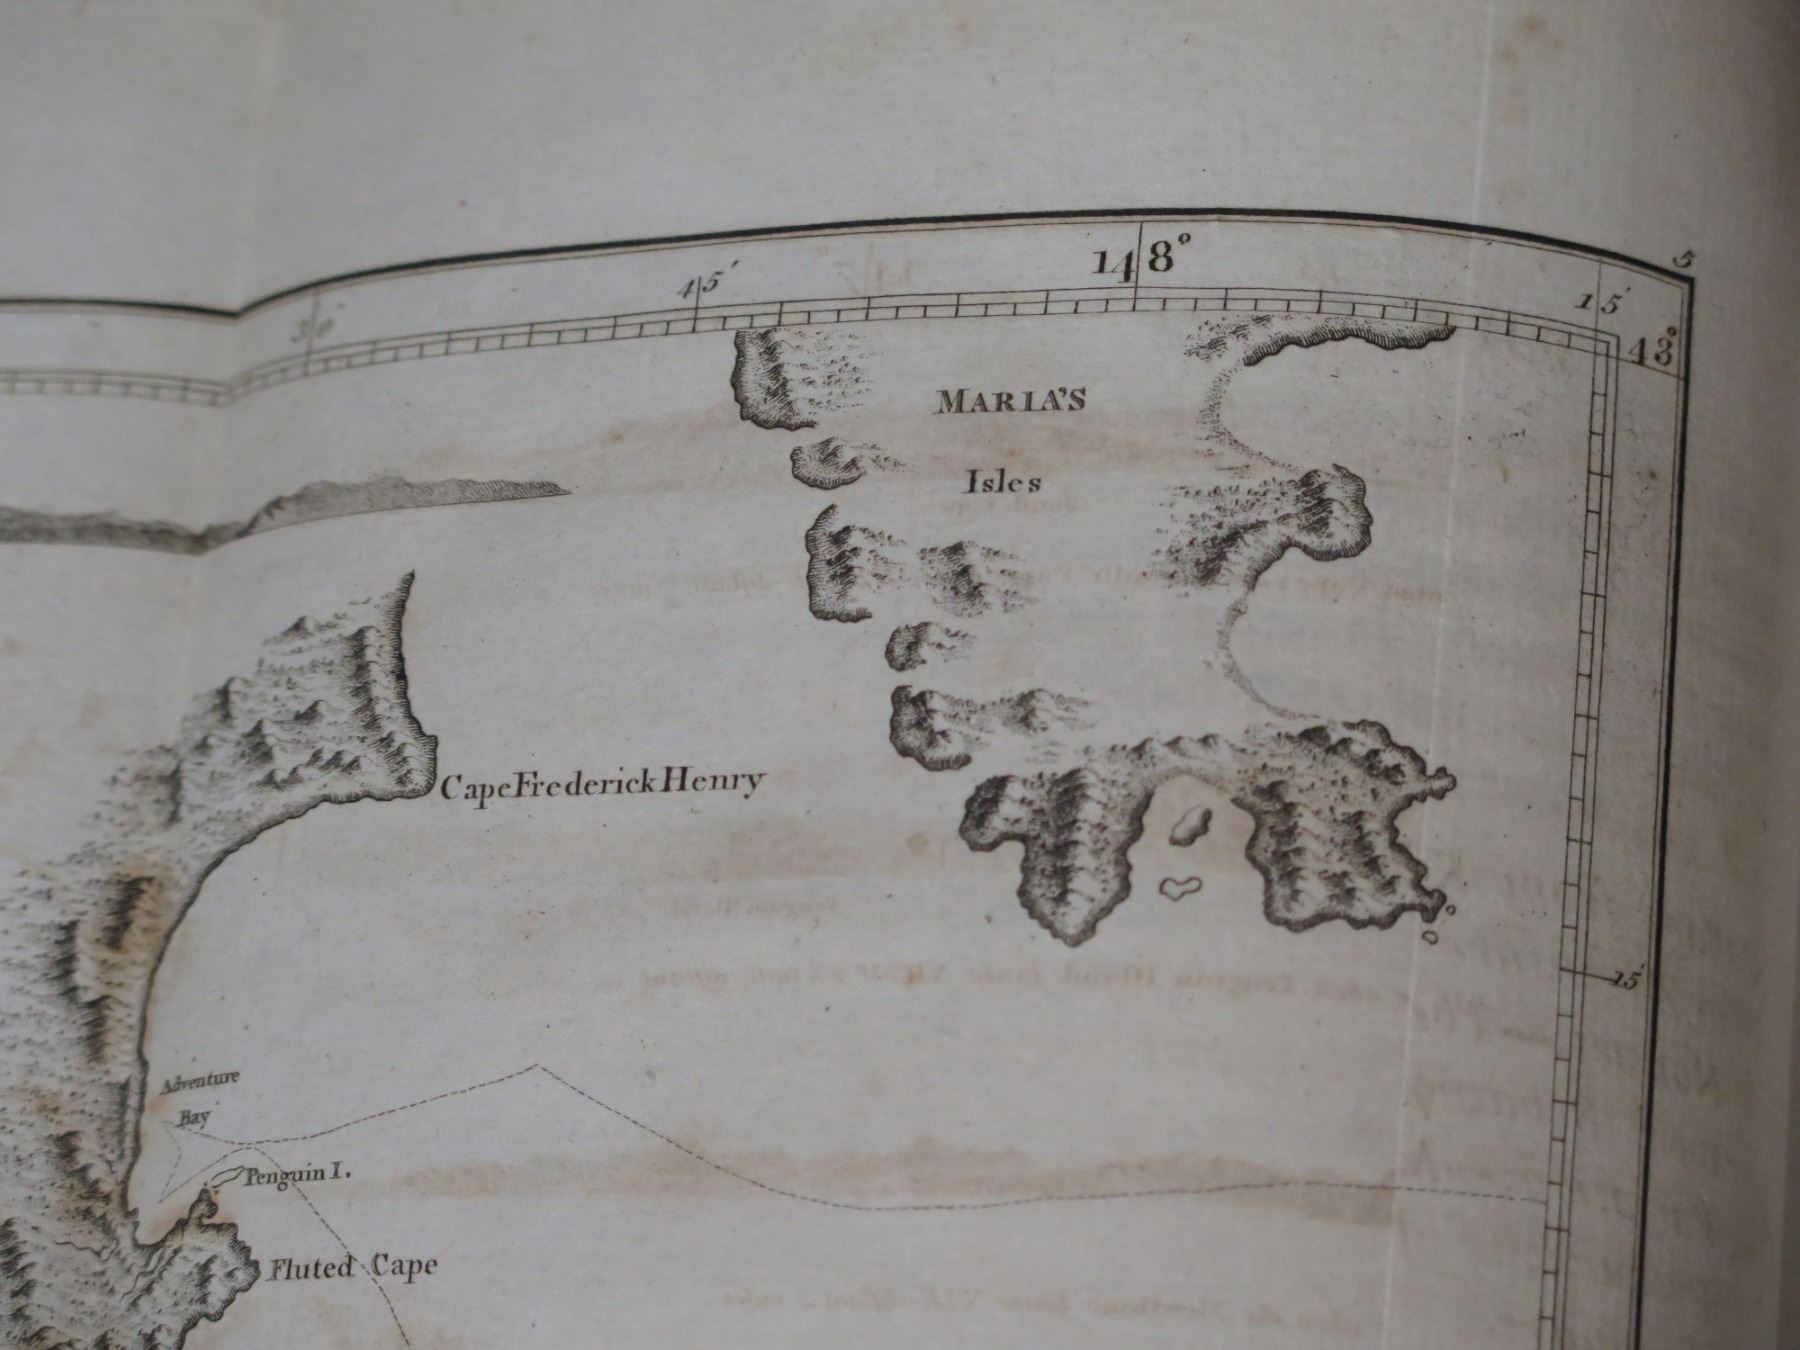 5
148°
15′
45′
30′
43°
MARIA'S
Isles
Cape Frederick Henry
15′
Adventure
Bay
Penguin I.
Fluted Cape